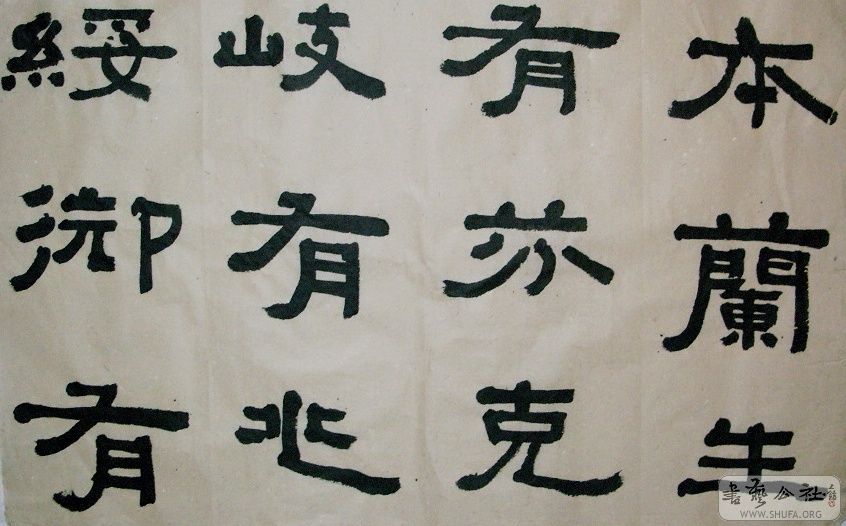 本蘭生
有芬克
岐有兆
綏御有
書藝公社
WWW.SHUFA.ORG